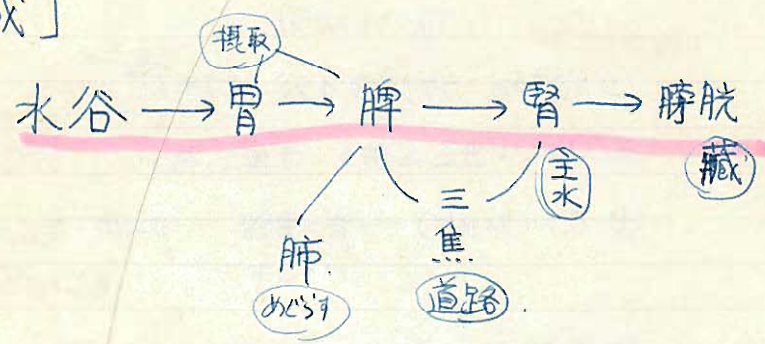 成」
摂取
水谷 → 胃 → 脾 → 腎 → 膀胱
主水
藏
三焦
肺.
めぐらす
道路.